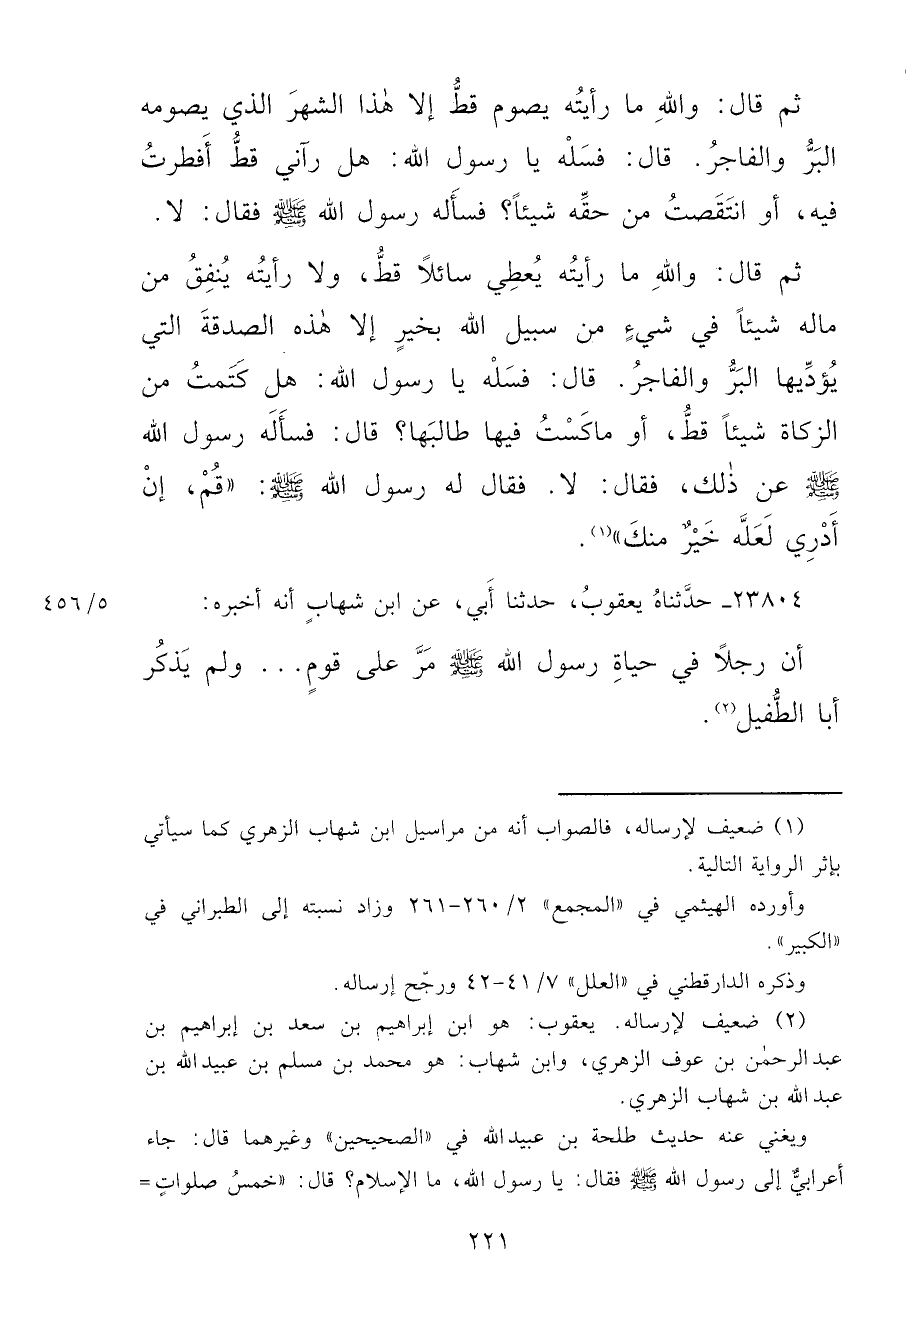 ثم قال: واللهِ ما رأيتُه يصوم قطُّ إلا هٰذا الشهرَ الذي يصومه
البَرُّ والفاجرُ. قال: فسَلْه يا رسول الله: هل رآني قطُّ أَفطرتُ
فيه، أو انتَقَصتُ من حقِّه شيئاً؟ فسأَله رسول الله ﷺ فقال: لا.
ثم قال: واللهِ ما رأيتُه يُعطِي سائلاً قطُّ، ولا رأيتُه يُنفِقُ من
ماله شيئاً في شيءٍ من سبيل الله بخيرٍ إلا هٰذه الصدقةَ التي
يُؤدِّيها البَرُّ والفاجرُ. قال: فسَلْه يا رسول الله: هل كَتَمتُ من
الزكاة شيئاً قطُّ، أو ماكَسْتُ فيها طالبَها؟ قال: فسأَلَه رسول الله
ﷺ عن ذٰلك، فقال: لا. فقال له رسول الله ﷺ: «قُمْ، إنْ
أَدْرِي لَعَلَّه خَيْرٌ منكَ»(١).
٢٣٨٠٤ـ حدَّثناهُ يعقوبُ، حدثنا أَبي، عن ابن شهابٍ أنه أخبره: ٤٥٦/٥
أن رجلاً في حياةِ رسول الله ﷺ مَرَّ على قومٍ... ولم يَذكُر
أبا الطُّفيل(٢).
(١) ضعيف لإرساله، فالصواب أنه من مراسيل ابن شهاب الزهري كما سيأتي
بإثر الرواية التالية.
وأورده الهيثمي في «المجمع» ٢/ ٢٦٠-٢٦١ وزاد نسبته إلى الطبراني في
«الكبير».
وذكره الدارقطني في «العلل» ٧/ ٤١-٤٢ ورجّح إرساله.
(٢) ضعيف لإرساله. يعقوب: هو ابن إبراهيم بن سعد بن إبراهيم بن
عبدالرحمٰن بن عوف الزهري، وابن شهاب: هو محمد بن مسلم بن عبيدالله بن
عبدالله بن شهاب الزهري.
ويغني عنه حديث طلحة بن عبيدالله في «الصحيحين» وغيرهما قال: جاء
أعرابيٌّ إلى رسول الله ﷺ فقال: يا رسول الله، ما الإسلام؟ قال: «خمسُ صلواتٍ =
٢٢١